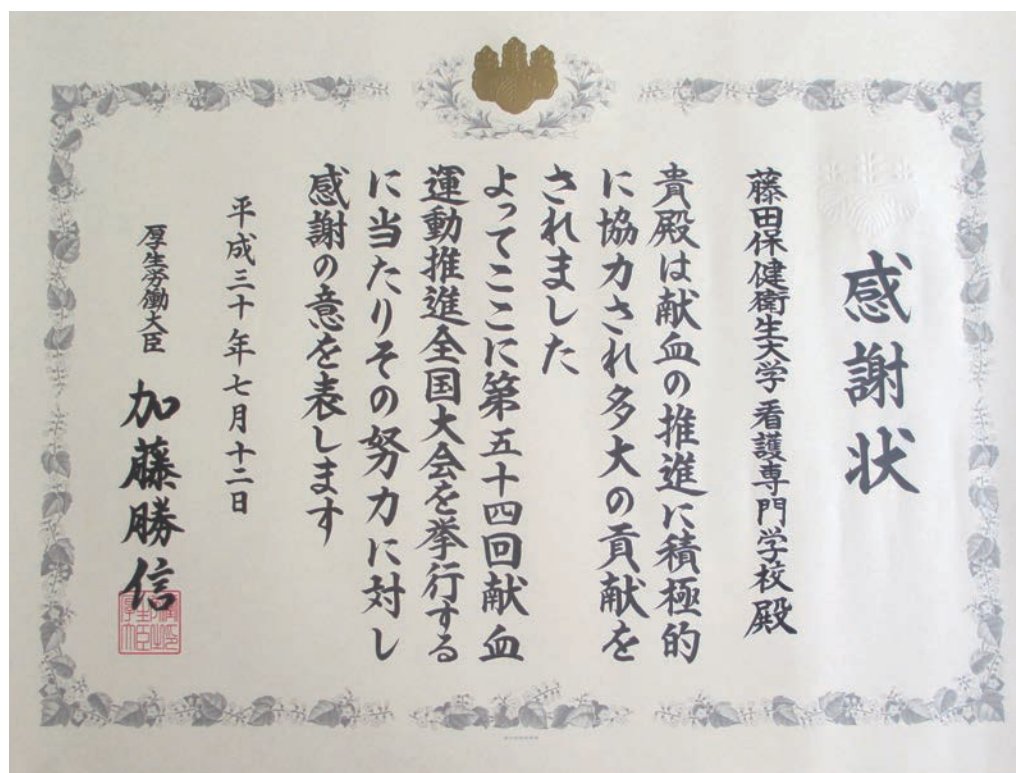 感謝状
藤田保健衛生大学 看護専門学校 殿
貴殿は献血の推進に積極的
に協力され多大の貢献を
されました
よってここに第五十四回献血
運動推進全国大会を挙行する
に当たりその努力に対し
感謝の意を表します
平成三十年七月十二日
厚生労働大臣 加藤勝信